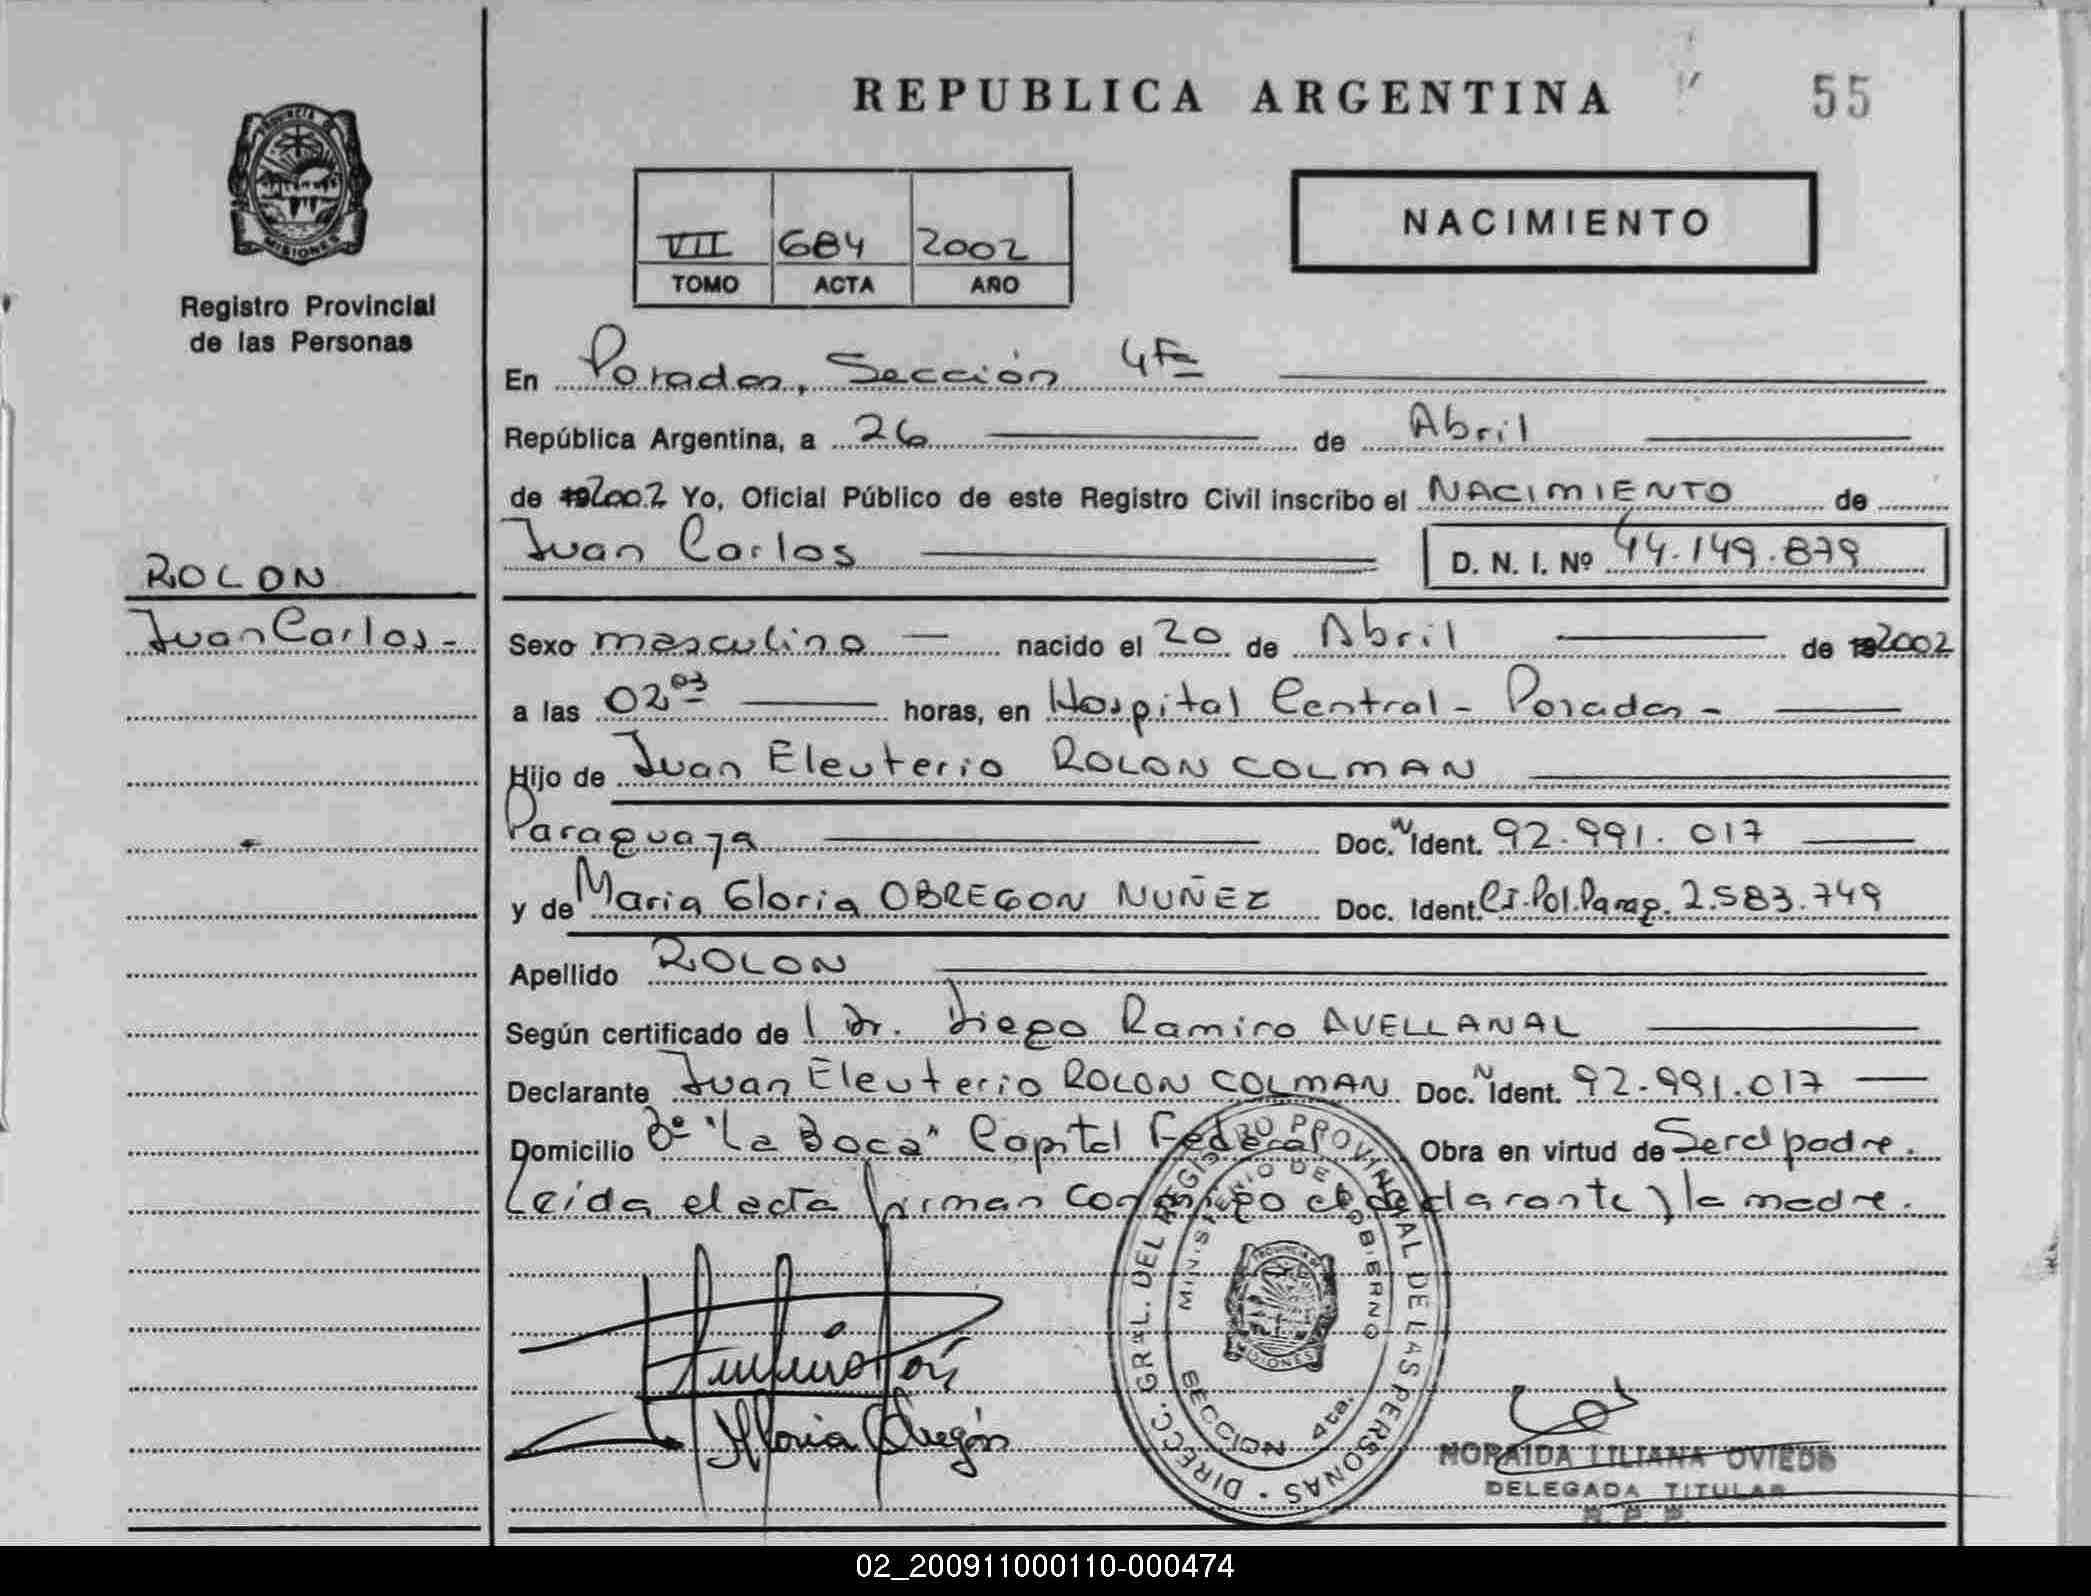 REPUBLICA ARGENTINA 55
PROVINCIA DE MISIONES
Registro Provincial
de las Personas
VII 684 2002
TOMO ACTA AÑO
NACIMIENTO
En Posadas, Sección 4ta
República Argentina, a 26 de Abril
de 192002 Yo, Oficial Público de este Registro Civil inscribo el NACIMIENTO de
Juan Carlos D. N. I. Nº 44.149.879
ROLON
Juan Carlos-
Sexo masculino nacido el 20 de Abril de 192002
a las 02 03 horas, en Hospital Central - Posadas -
Hijo de Juan Eleuterio ROLON COLMAN
Paraguaya Doc. N Ident. 92.991.017
y de Maria Gloria OBREGON NUÑEZ Doc. Ident. CI.Pol.Parag. 2.583.749
Apellido ROLON
Según certificado de l Dr. Diego Ramiro AVELLANAL
Declarante Juan Eleuterio ROLON COLMAN Doc. N Ident. 92.991.017
Domicilio Bº "La Boca" Capital Federal Obra en virtud de Ser el padre.
Leída el acta firman conmigo el declarante y la madre.
DIRECC. GRAL. DEL REGISTRO PROVINCIAL DE LAS PERSONAS
MINISTERIO DE GOBIERNO
PROVINCIA DE MISIONES
SECCION 4ta.
Gloria Obregón
NORAIDA LILIANA OVIEDO
DELEGADA TITULAR
R. P. P.
02_200911000110-000474